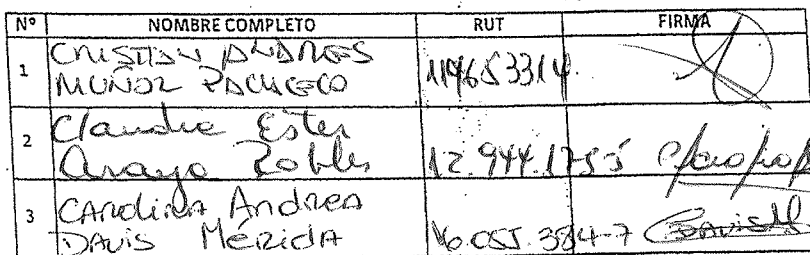 Nº NOMBRE COMPLETO RUT FIRMA
1 CRISTIAN ANDRES
MUÑOZ PACHECO
2 Claudia Ester
Araya Robles 12.944.175-5
3 CAROLINA Andrea
DAVIS MéRidA 16.055.384-7